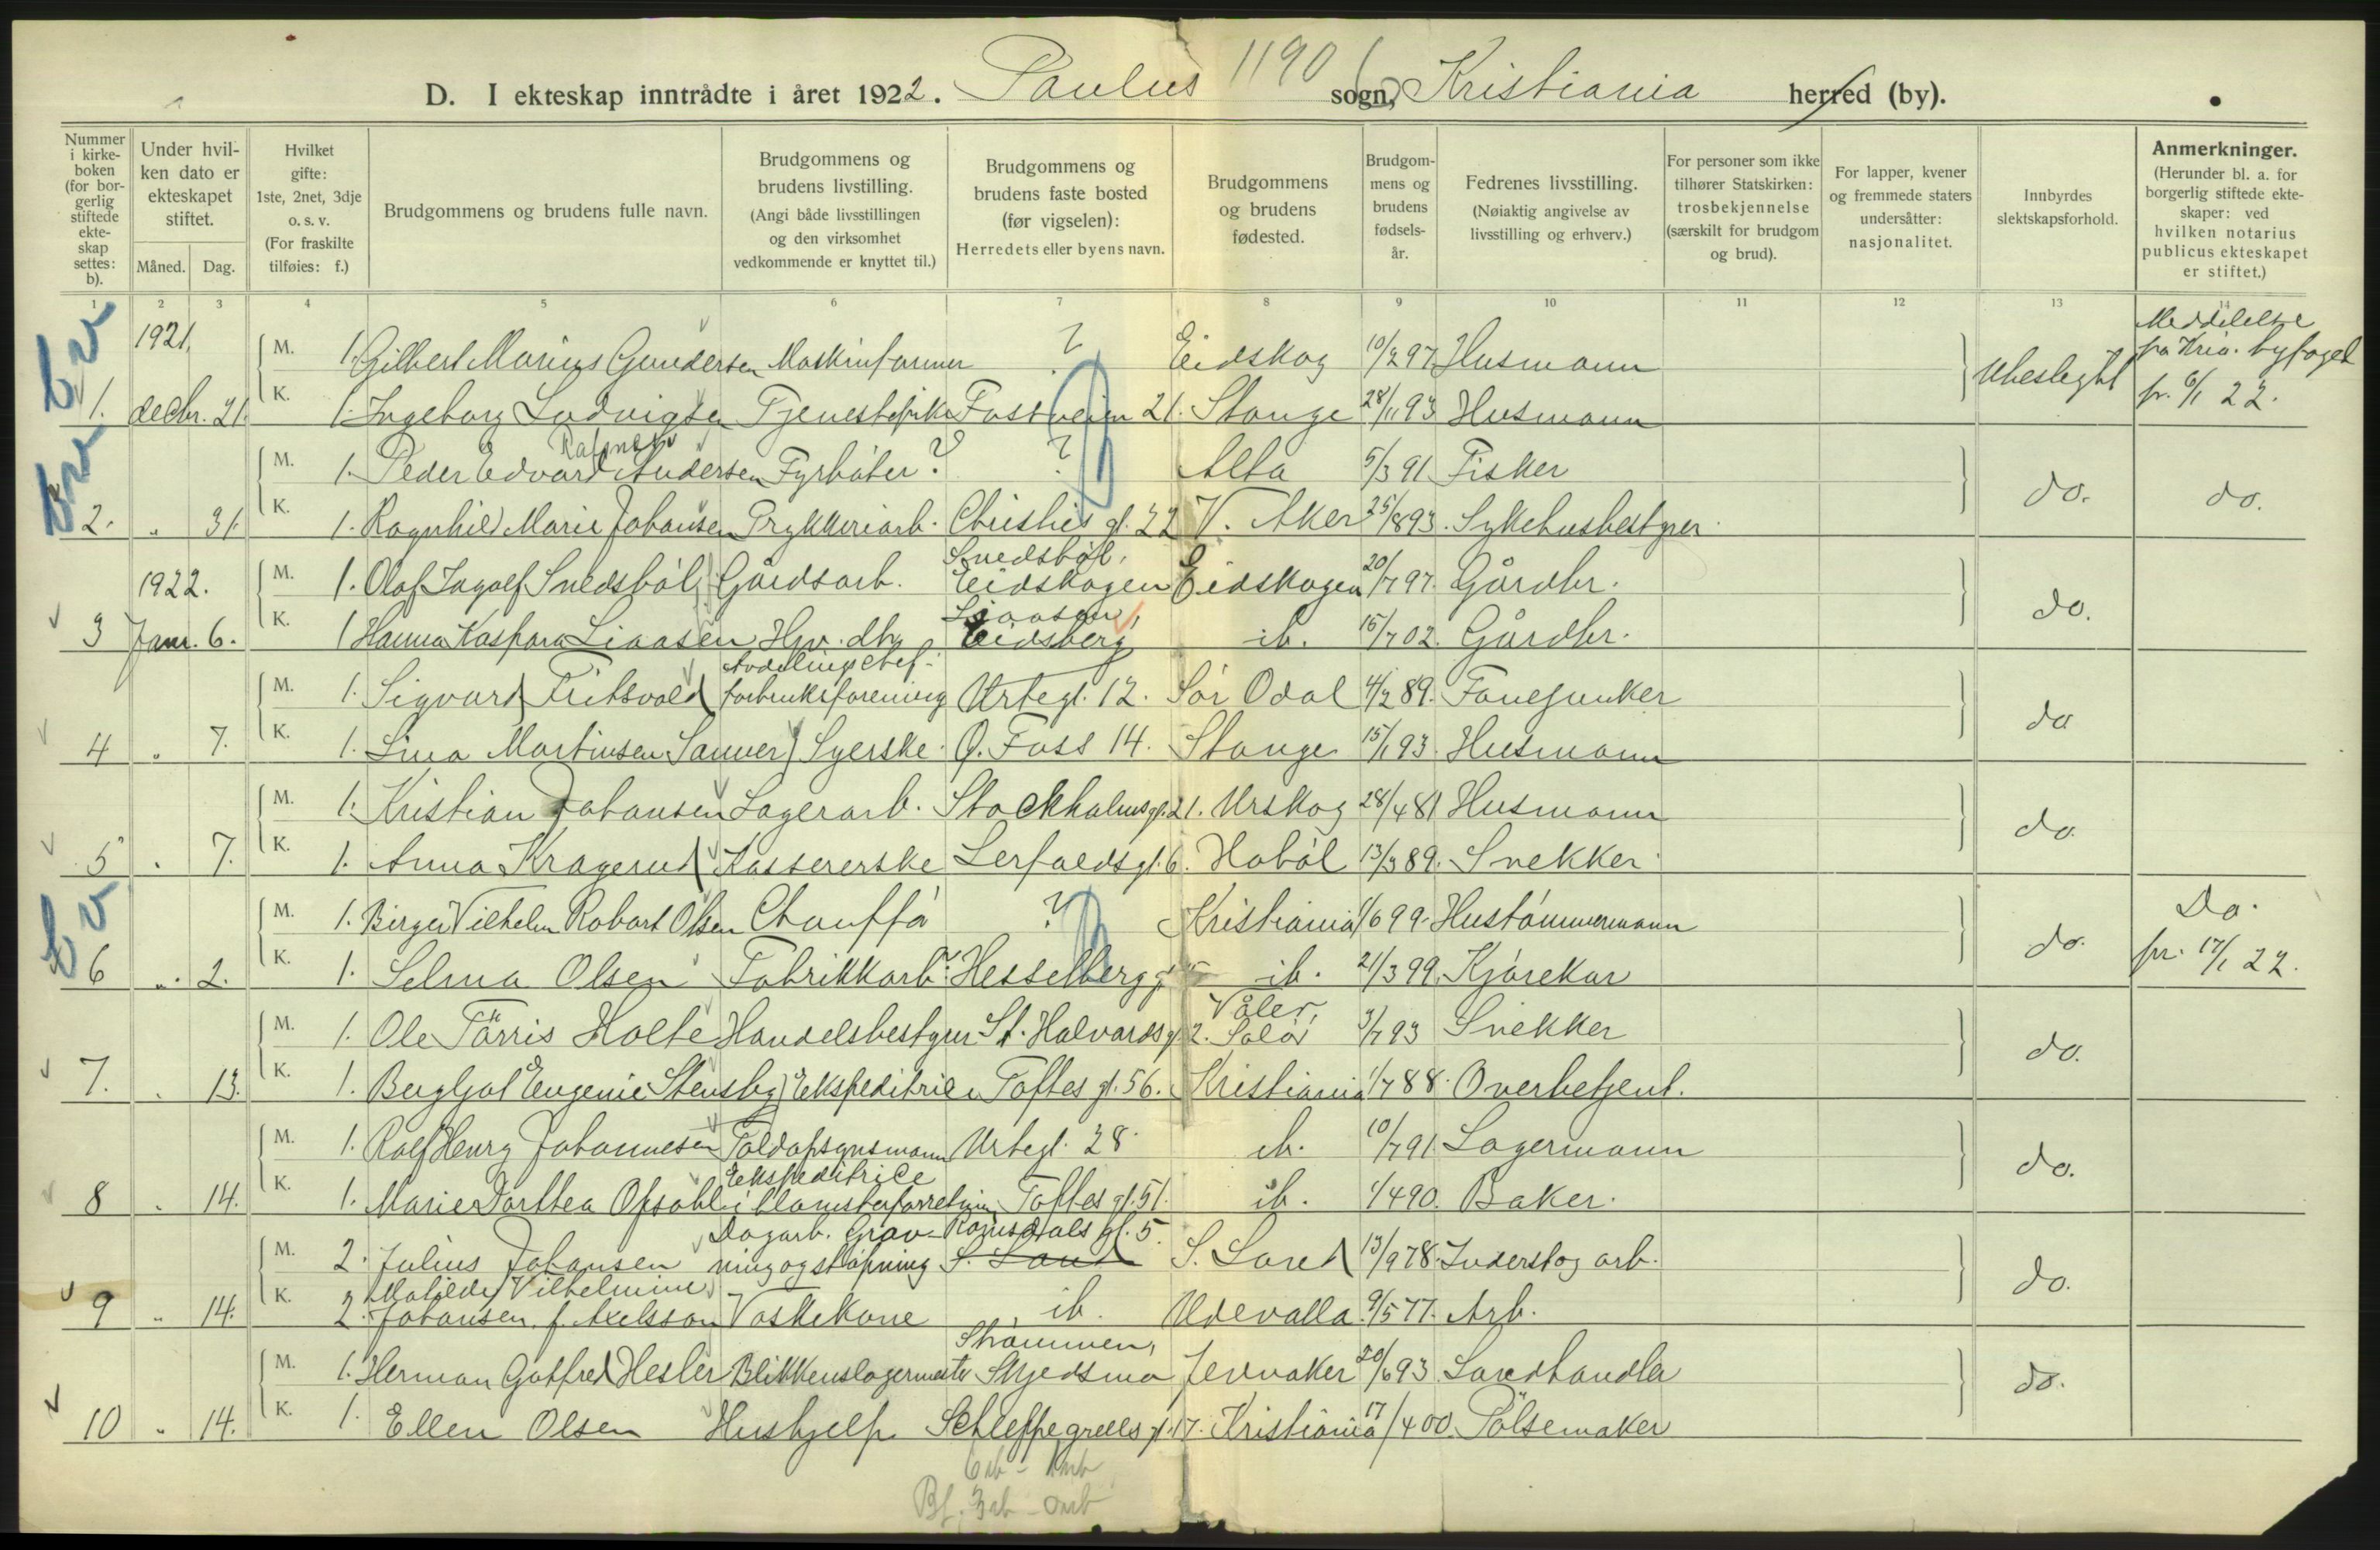 D. I ekteskap inntrådte i året 1922. Paulus 1190 sogn, Kristiania herred (by).
Nummer i kirke-boken (for bor-gerlig stiftede ekte-skap settes: b).
Under hvil-ken dato er ekteskapet stiftet.
Måned. Dag.
Hvilket gifte: 1ste, 2net, 3dje o. s. v. (For fraskilte tilføies: f.)
Brudgommens og brudens fulle navn.
Brudgommens og brudens livstilling. (Angi både livsstillingen og den virksomhet vedkommende er knyttet til.)
Brudgommens og brudens faste bosted (før vigselen): Herredets eller byens navn.
Brudgommens og brudens fødested.
Brudgom-mens og brudens fødsels-år.
Fedrenes livsstilling. (Nøiaktig angivelse av livsstilling og erhverv.)
For personer som ikke tilhører Statskirken: trosbekjennelse (særskilt for brudgom og brud).
For lapper, kvener og fremmede staters undersåtter: nasjonalitet.
Innbyrdes slektskapsforhold.
Anmerkninger. (Herunder bl. a. for borgerlig stiftede ekte-skaper: ved hvilken notarius publicus ekteskapet er stiftet.)
1 2 3 4 5 6 7 8 9 10 11 12 13 14
1921. M. 1. Gilbert Marius Gundersen Maskinformer ? Eidskog 10/2 97 Husmann Meddelelse fra Kria. byfoged
1. decbr. 21. K. 1. Ingeborg Ludvigsen Tjenestepike Fossveien 21. Stange 28/11 93 Husmann Ubeslegtet fr. 6/1 22.
M. 1. Peder Edvard Andersen Fyrbøter ? ? Alta 5/3 91 Fisker
2. " 31. K. 1. Ragnhild Marie Johansen Trykkeriarb. Christies gt. 22 V. Aker 25/8 93. Sykehusbestyrer do. do.
1922. M. 1. Olaf Ingolf Snedsbøl Gårdsarb. Snedsbøl, Eidskogen Eidskogen 20/7 97. Gårdbr.
3 Janr. 6. K. 1 Hanna Kaspara Liaasen Hv. dtr. Liaasen, Eidsberg ib. 15/7 02. Gårdbr. do.
M. 1. Sigvard Fritsvold Avdelingschef forbruksforening Urtegt. 12. Sør Odal 4/2 89. Fanejunker
4 " 7. K. 1. Lina Martinsen Sanner Syerske. Ø. Foss 14. Stange 15/1 93. Husmann do
M. 1. Kristian Johansen Lagerarb. Stockholmsgt. 21. Urskog 28/4 81 Husmann
5 " 7. K. 1. Anna Kragerud Kassererske Lerfaldsgt. 6. Hobøl 13/3 89. Snekker do.
M. 1. Birger Vilhelm Robart Olsen Chauffø ? Kristiania 1/6 99. Hustømmermann Do.
6 " 2. K. 1. Selma Olsen Fabrikkarb. Hesselberg gt. ib. 21/3 99. Kjørekar do. fr. 17/1 22.
M. 1. Ole Tørris Holte Handelsbestyrer St. Halvards gt. 2. Våler, Solør 3/7 93 Snekker
7. " 13. K. 1. Bergljot Eugenie Stensby Ekspeditrice Toftes gt. 56. Kristiania 1/7 88. Overbetjent. do.
M. 1. Ralf Henry Johannesen Toldopsynsmann Urtegt. 28 ib. 10/7 91 Lagermann
8 " 14. K. 1. Marie Dorthea Opsahl Ekspeditrice i blomsterforretning Toftes gt. 51. ib. 1/4 90. Baker. do.
M. 2. Julius Johansen Dagarb. Grav-ning og støpning Romsdals gt. 5. S. Land S. Land 13/9 78. Inderst og arb.
9 " 14. K. 2. Matilde Vilhelmine Johansen f. Axelsson Vaskekone ib. Udevalla 9/5 77. Arb. do.
M. 1. Herman Gotfred Hesler Blikkenslagermester Strømmen, Skjedsmo Jevnaker 20/6 93 Landhandler
10 " 14. K. 1. Ellen Olsen Hushjelp Schleppegrells gt. 17. Kristiania 17/4 00. Pølsemaker do.